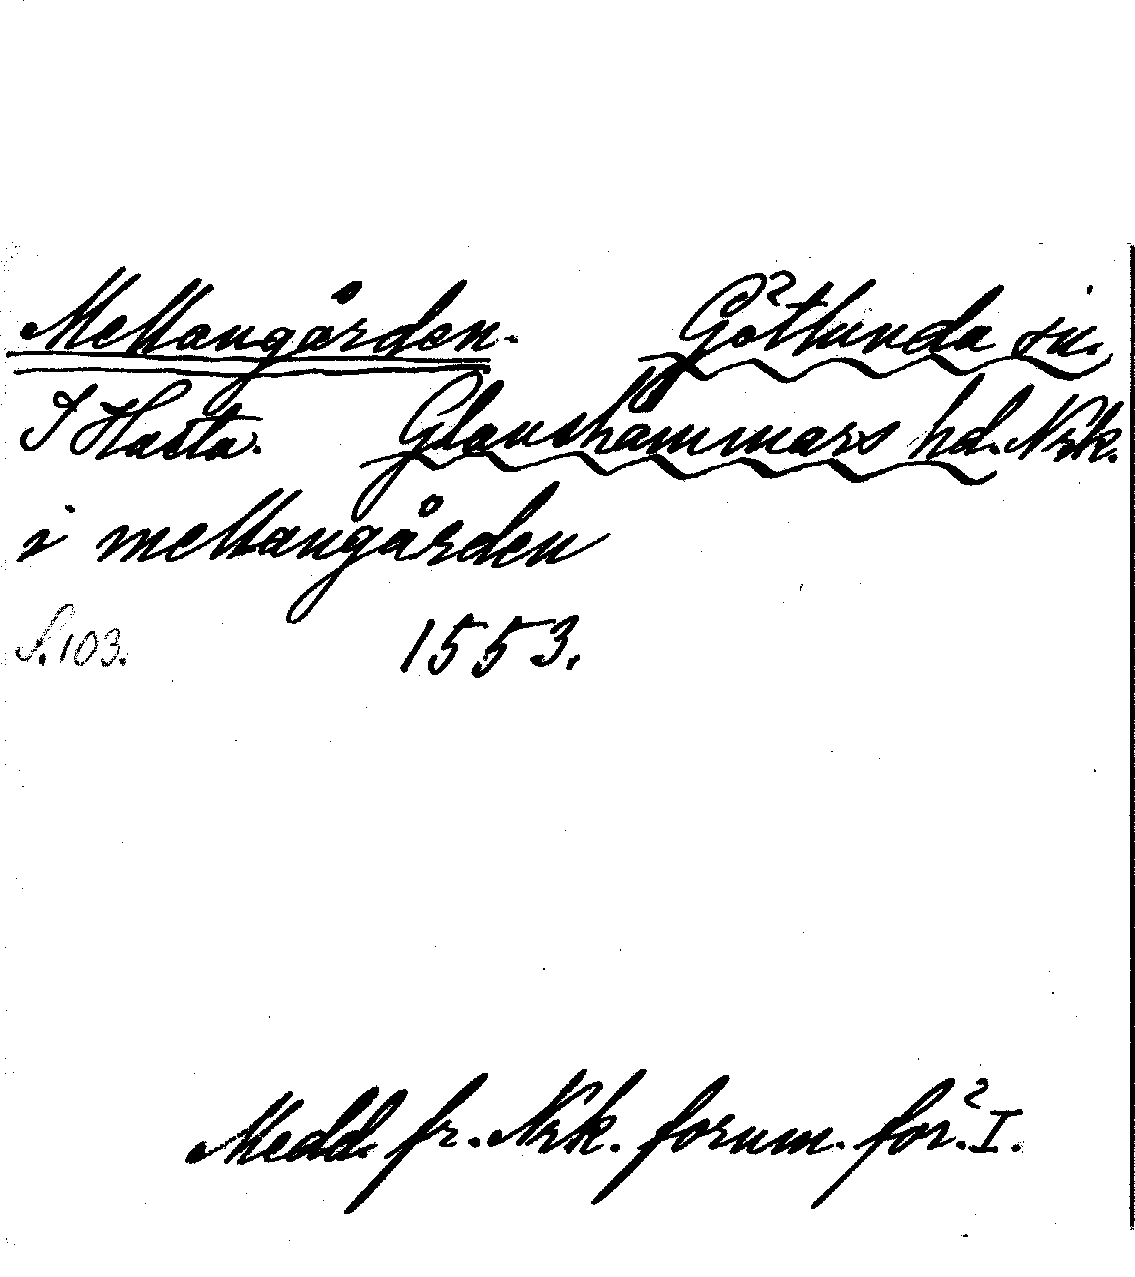 Mellangården. Götlunda sn.
I Hasta. Glanshammars hd. Nrk.
i mellangården
S. 103. 1553.
Medd. fr. Nrk. fornm. för. I.